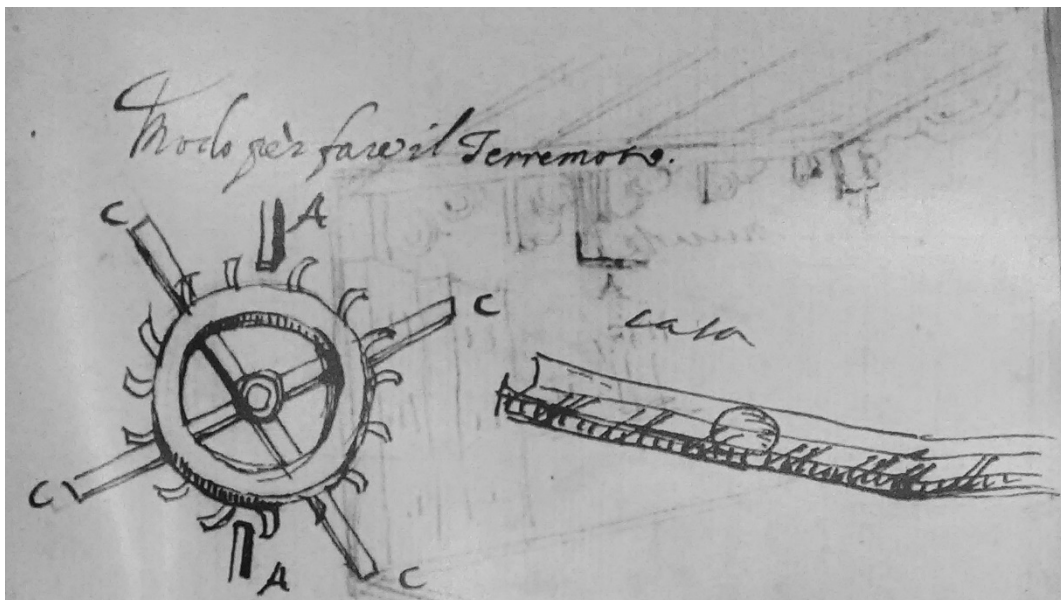 Modo per fare il Terremoto.
C
A
C
cala
C
A
C